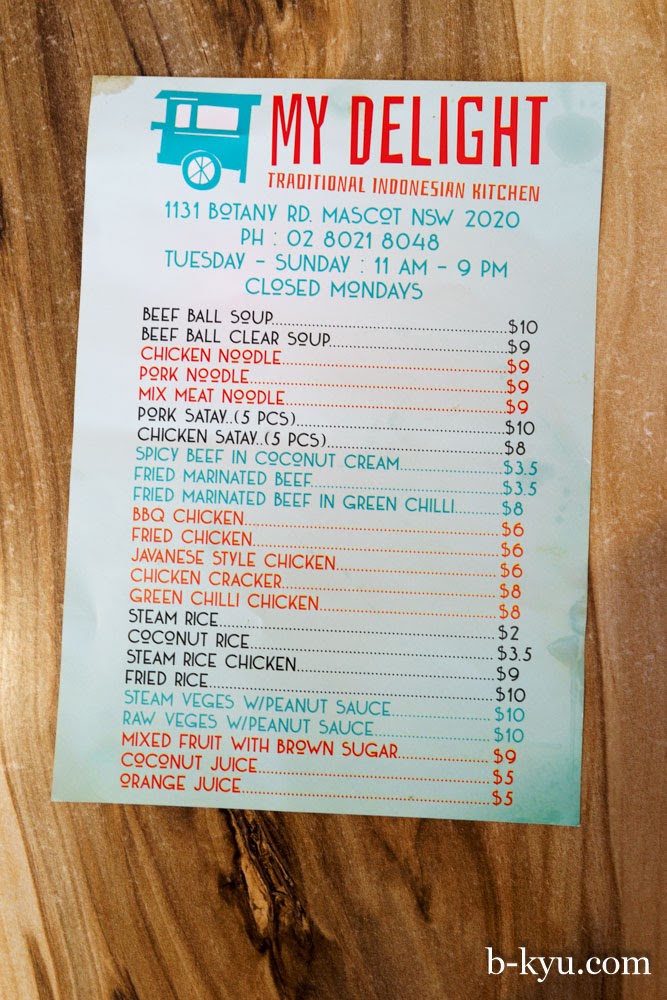 MY DELIGHT
TRADITIONAL INDONESIAN KITCHEN
1131 BOTANY RD. MASCOT NSW 2020
PH : 02 8021 8048
TUESDAY - SUNDAY : 11 AM - 9 PM
CLOSED MONDAYS
BEEF BALL SOUP...$10
BEEF BALL CLEAR SOUP...$9
CHICKEN NOODLE...$9
PORK NOODLE...$9
MIX MEAT NOODLE...$9
PORK SATAY..(5 PCS)...$10
CHICKEN SATAY..(5 PCS)...$8
SPICY BEEF IN COCONUT CREAM...$3.5
FRIED MARINATED BEEF...$3.5
FRIED MARINATED BEEF IN GREEN CHILLI...$8
BBQ CHICKEN...$6
FRIED CHICKEN...$6
JAVANESE STYLE CHICKEN...$6
CHICKEN CRACKER...$8
GREEN CHILLI CHICKEN...$8
STEAM RICE...$2
COCONUT RICE...$3.5
STEAM RICE CHICKEN...$9
FRIED RICE...$10
STEAM VEGES W/PEANUT SAUCE...$10
RAW VEGES W/PEANUT SAUCE...$10
MIXED FRUIT WITH BROWN SUGAR...$9
COCONUT JUICE...$5
ORANGE JUICE...$5
b-kyu.com